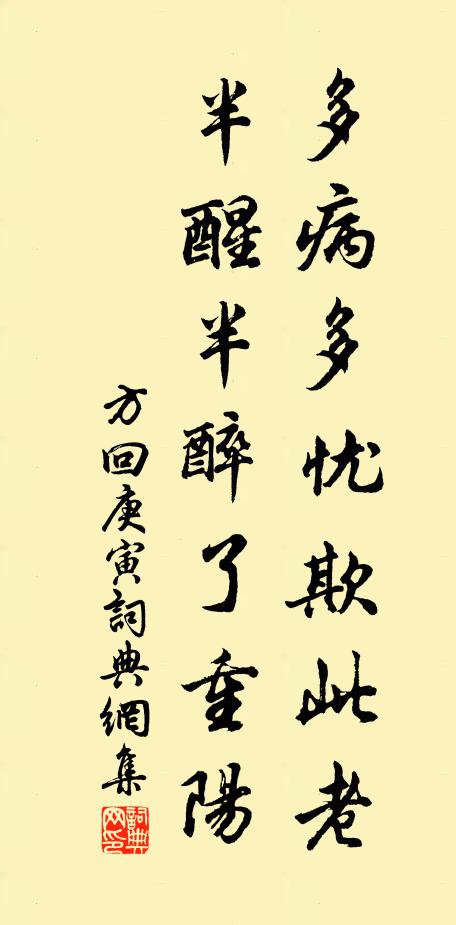 多病多忧欺此老
半醒半醉了重陽
方回庚寅詞典網集
詞典網印